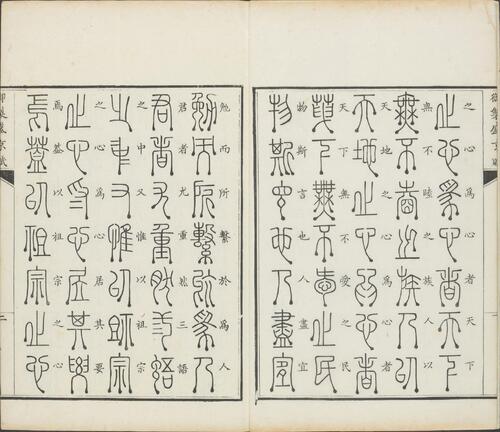 之心為心者天下
無不睦之族人以
天地之心為心者
天下無不愛之民
物斯言也人盡宜
勉而所繫於為人
君者尤重然三語
之中又惟以祖宗
之心為心居其要
焉蓋以祖宗之心